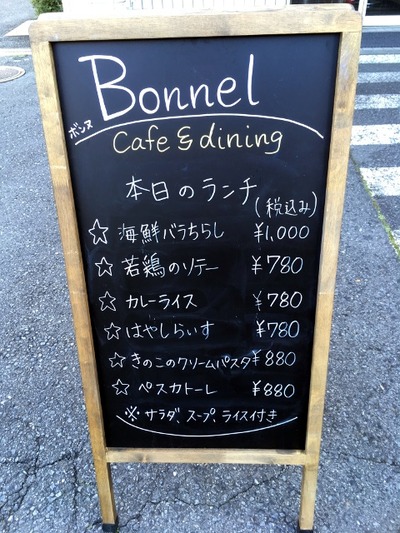 Bonnel
ボンヌ
Cafe & dining
本日のランチ
(税込み)
☆ 海鮮バラちらし ¥1,000
☆ 若鶏のソテー ¥780
☆ カレーライス ¥780
☆ はやしらいす ¥780
☆ きのこのクリームパスタ ¥880
☆ ペスカトーレ ¥880
※ サラダ、スープ、ライス付き